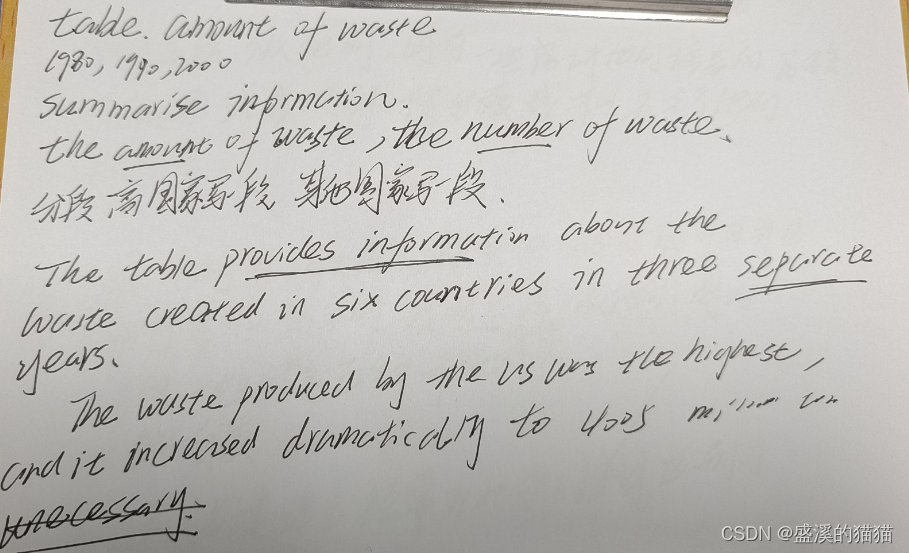 table. amount of waste
1980, 1990, 2000
summarise information.
the amount of waste, the number of waste.
分段 高国家写一段 其他国家写一段.
The table provides information about the
waste created in six countries in three separate
years.
The waste produced by the us was the highest,
and it increased dramatically to 4005 million
unecessary.
CSDN @盛溪的猫猫